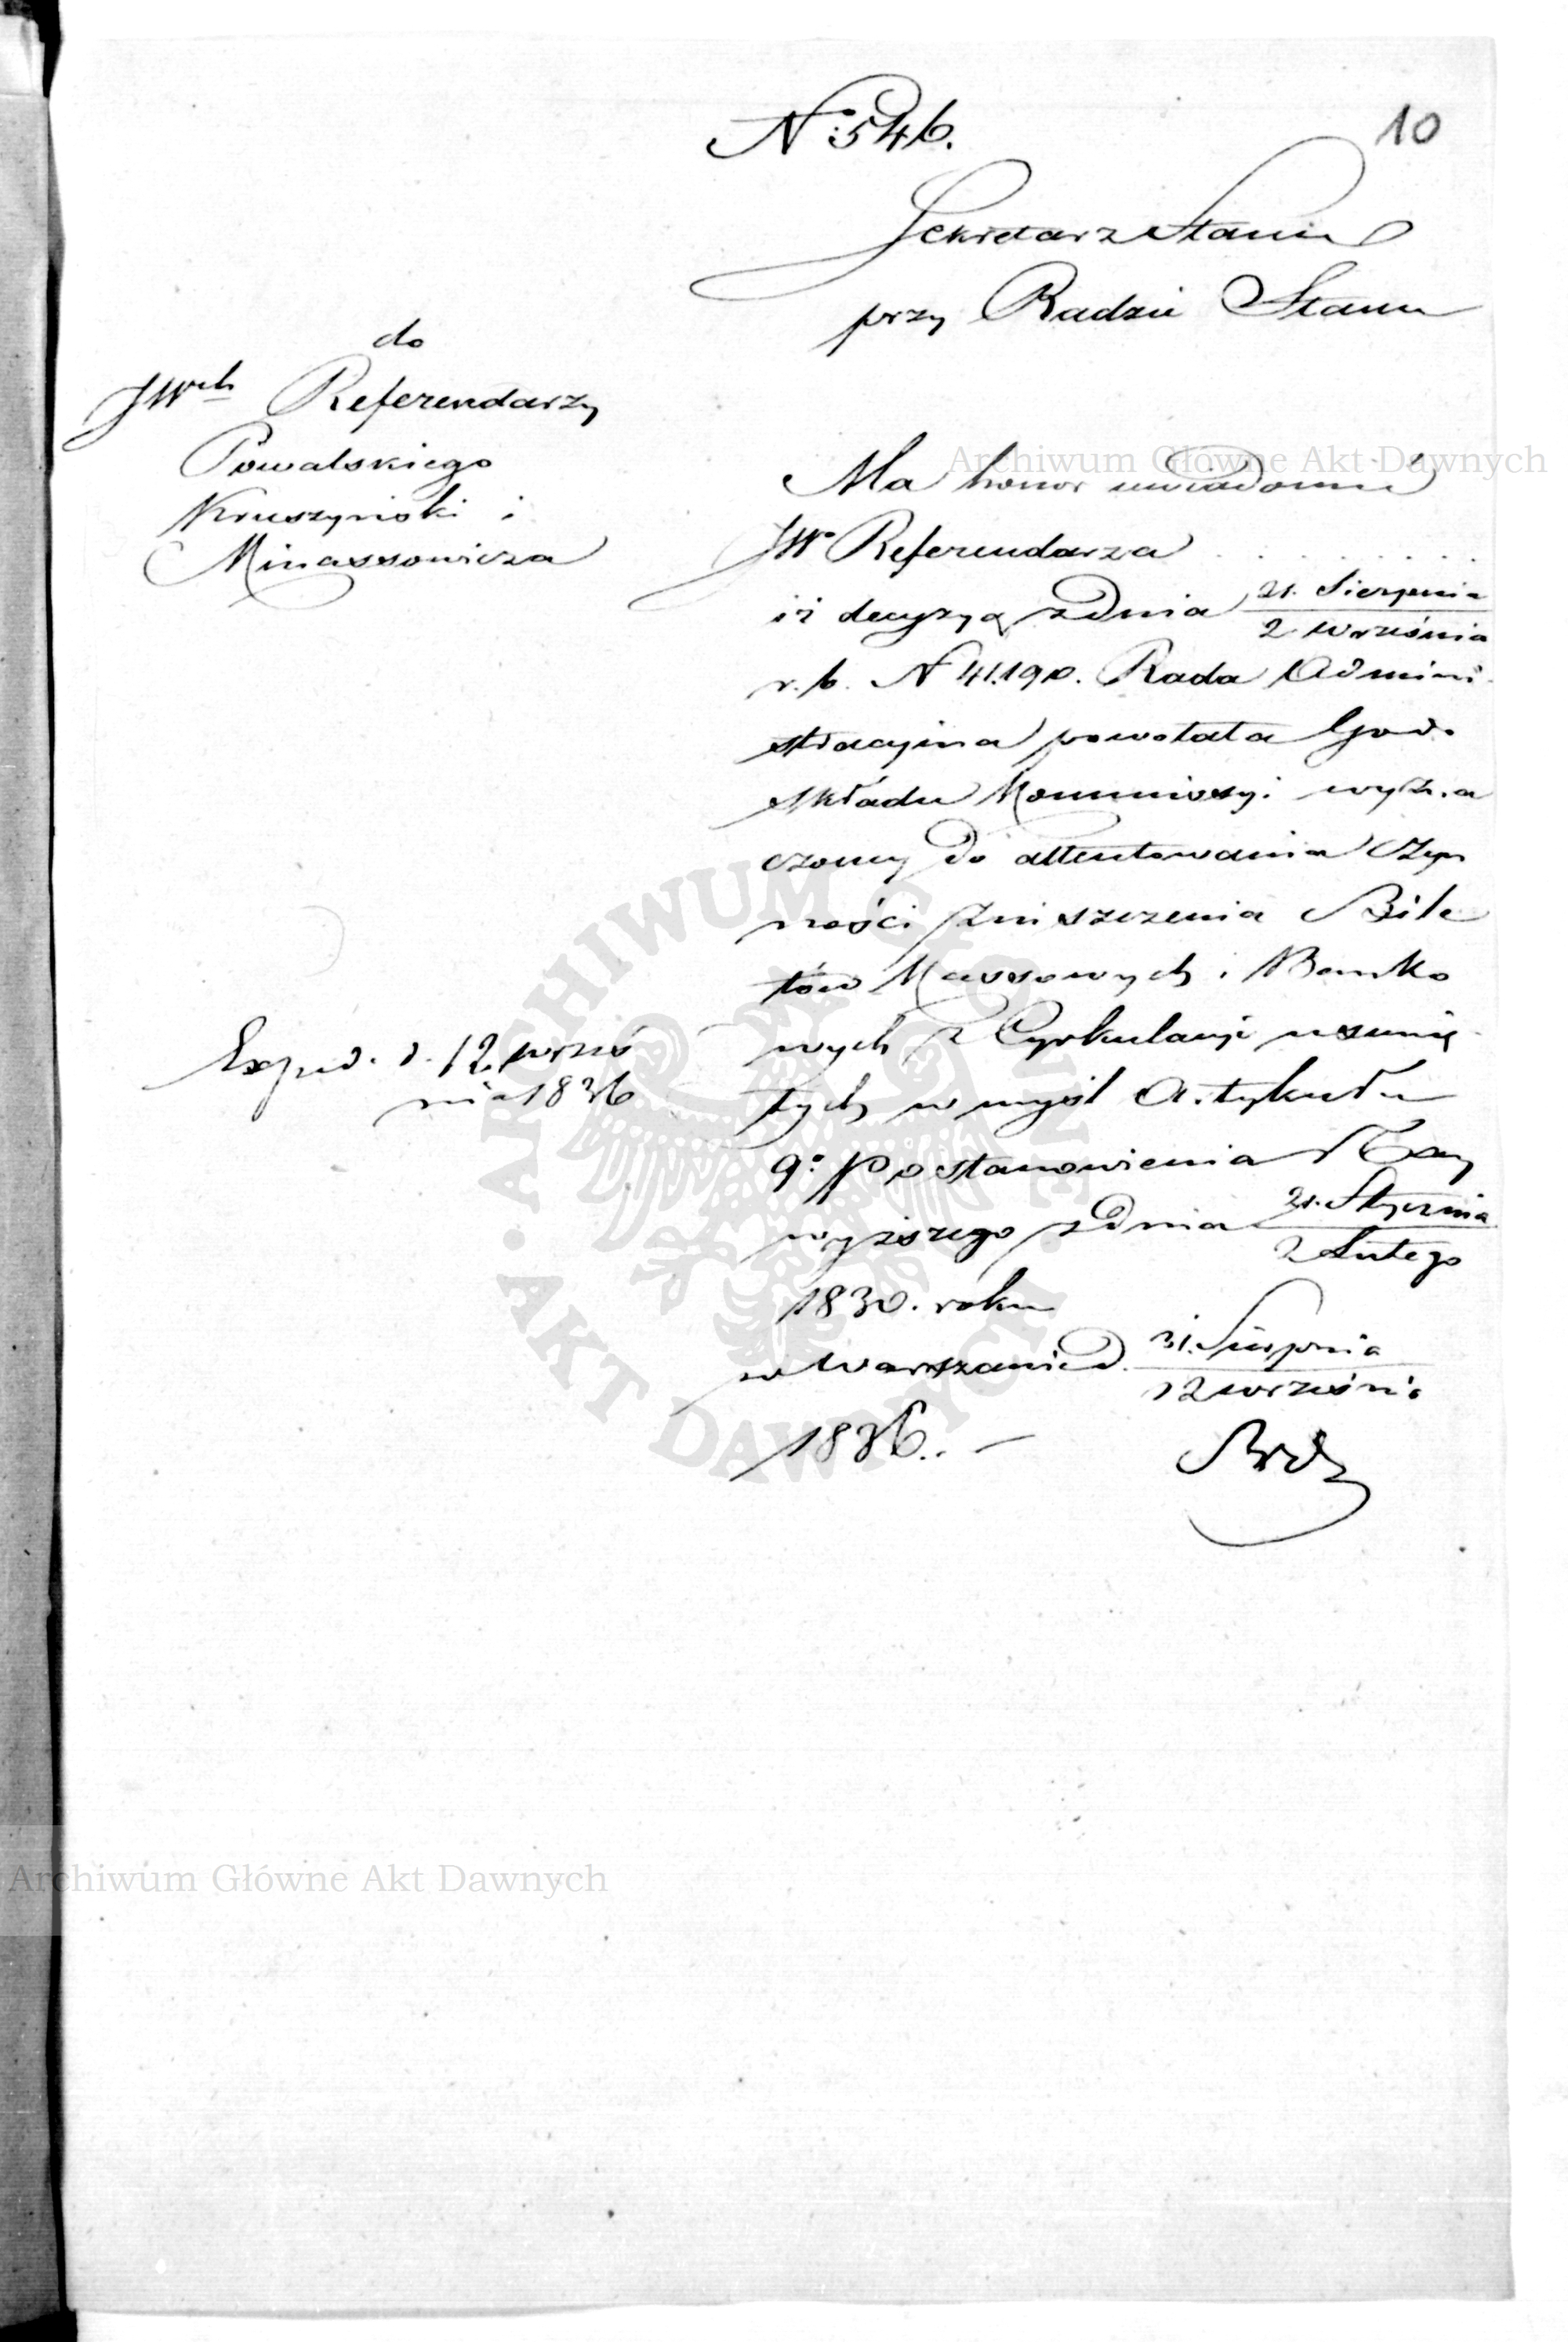 N° 546.
10
Sekretarz Stanu
przy Radzie Stanu
do
JWch Referendarzy
Powalskiego
Kruszyński i
Minassowicza
Ma honor uwiadomić
JWo Referendarza . . . . . . . .
iż decyzyą z dnia 21. Sierpnia
2 września
r. b. N 41.190. Rada Admini
stracyina powołała Go do
składu Kommissyi wyzna
czoney do attentowania czyn
ności zniszczenia Bile
tów Kassowych i Banko
wych z Cyrkulacyi usunię
tych w myśl Artykułu
9° Postanowienia Nay
wyższego z dnia 21. Stycznia
2 Lutego
1830. roku
w Warszawie d. 31. Sierpnia
12 września
1836. —
Exped. d. 12 wrześ
nia 1836
Archiwum Główne Akt Dawnych
ARCHIWUM GŁÓWNE
AKT DAWNYCH
Archiwum Główne Akt Dawnych